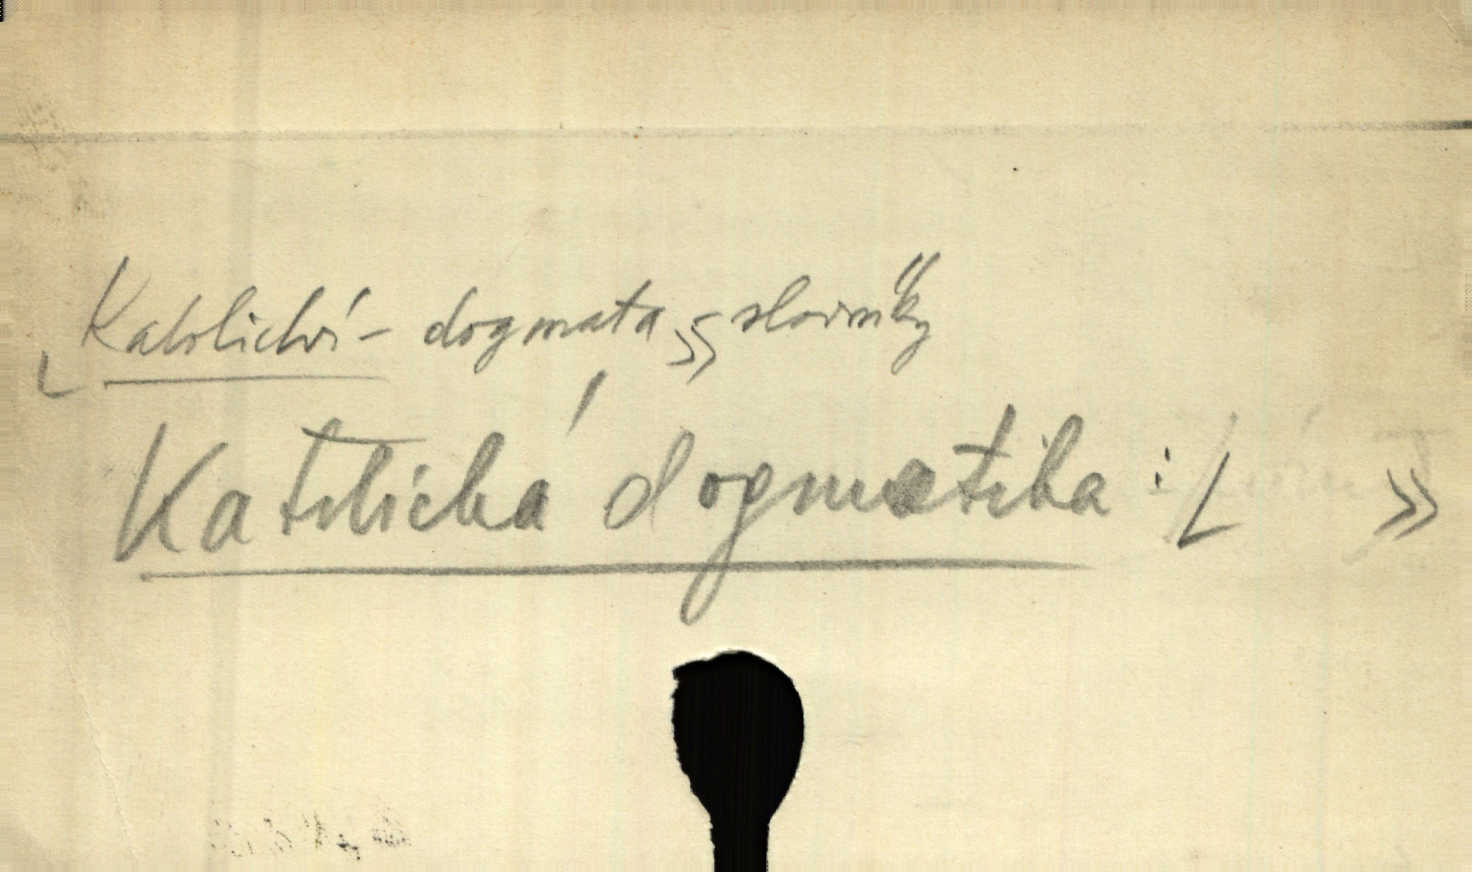 „Katolictví - dogmata » - slovníky“
Katolická dogmatika : L »